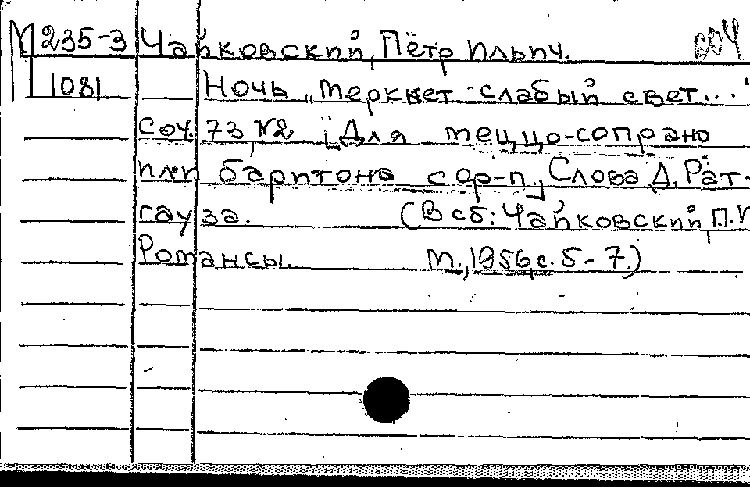 М 235-3 Чайковский, Пётр Ильич.
1081 Ночь „Меркнет слабый свет..."
Соч. 73, №2 [Для меццо-сопрано
или баритона с ф-п.] Слова Д. Рат-
гауза. (В сб: Чайковский, П.И
Романсы. М., 1956, с. 5-7.)